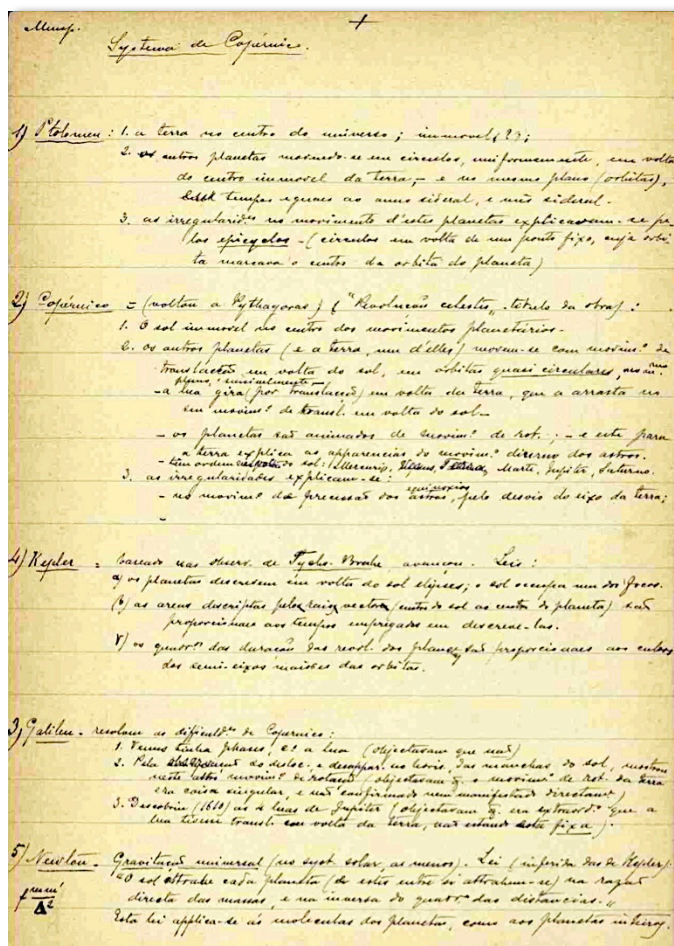 Systema de Copérnico.
1) Ptolomeu: 1. a terra no centro do universo; immovel (2?);
2. os outros planetas movendo-se em circulos, uniformemente, em volta
do centro immovel da terra, – e no mesmo plano (orbitas),
tempos eguaes ao anno sideral, e mês sideral.
3. as irregularid.es no movimento d'estes planetas explicavam-se pe-
los epicyclos – (circulos em volta de um ponto fixo, cuja orbi-
ta marcava o centro da orbita do planeta)
2) Copérnico = (voltou a Pythagoras) ("Revolução celeste", titulo da obra):
1. O sol immovel no centro dos movimentos planetários.
2. os outros planetas (e a terra, um d'elles) movem-se com movim.to de
translação em volta do sol, em orbitas quasi circulares, no m.mo
plano,
– a lua gira (por translação) em volta da terra, que a arrasta no
seu movim.to de transl. em volta do sol –
– os planetas são animados de movim.to de rot.; – e este para
a terra explica as apparencias do movim.to diurno dos astros.
– têm ordem do sol: Mercurio, Venus, Terra, Marte, Jupiter, Saturno.
3. as irregularidades explicam-se:
– no movim.to de precessão dos equinoxios, pelo desvio do eixo da terra;
–
4) Kepler = baseado nas observ. de Tycho-Brahe avançou. Leis:
α) os planetas descrevem em volta do sol elipses; o sol ocupa um dos focos.
(β) as areas descriptas pelos raios vectores (centro do sol ao centro do planeta) são
proporcionaes aos tempos empregados em descreve-las.
γ) os quadr.os das duração das revol. dos planetas são proporcionaes aos cubos
dos semi-eixos maiores das orbitas.
3) Galileu – resolveu as dificuld.es de Copernico:
1. Venus tinha phases, a lua (objectavam que não)
2. Pela do desloc. e desappar. no horis. das manchas do sol, mostrou
neste astro movim.to de rotação (objectavam q. o movim.to de rot. da terra
era coisa singular, e não confirmado nem manifestado directam.te)
3. Descobriu (1610) as 4 luas de Jupiter (objectavam q. era extraord.o que a
lua tivesse transl. em volta da terra, não estando esta fixa).
5) Newton – Gravitação universal (no syst. solar, ao menos). Lei (inferida das de Kepler):
"O sol attrahe cada planeta (e estes entre si attrahem-se) na razão
directa das massas, e na inversa do quadr.o das distancias."
f mm'/Δ²
Esta lei applica-se ás moleculas dos planetas, como aos planetas inteiros.